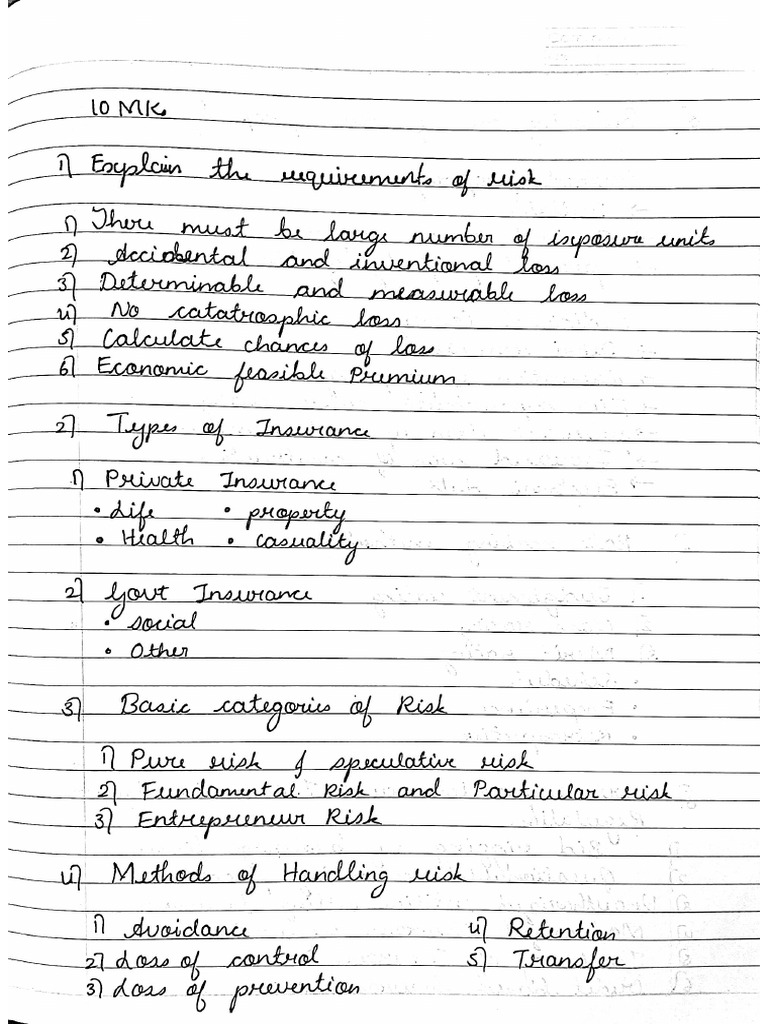 10 MK.
1) Explain the requirements of risk
1) There must be large number of isxposure units
2) Accidental and inventional loss
3) Determinable and measurable loss
4) No catatrosphic loss
5) Calculate chances of loss
6) Economic feasible Premium
2) Types of Insurance
1) Private Insurance
• Life • property
• Health • casuality.
2) Govt Insurance
• social
• Other
3) Basic categories of Risk
1) Pure risk & speculative risk
2) Fundamental Risk and Particular risk
3) Entrepreneur Risk
4) Methods of Handling risk
1) Avoidance 4) Retention
2) Loss of control 5) Transfer
3) Loss of prevention